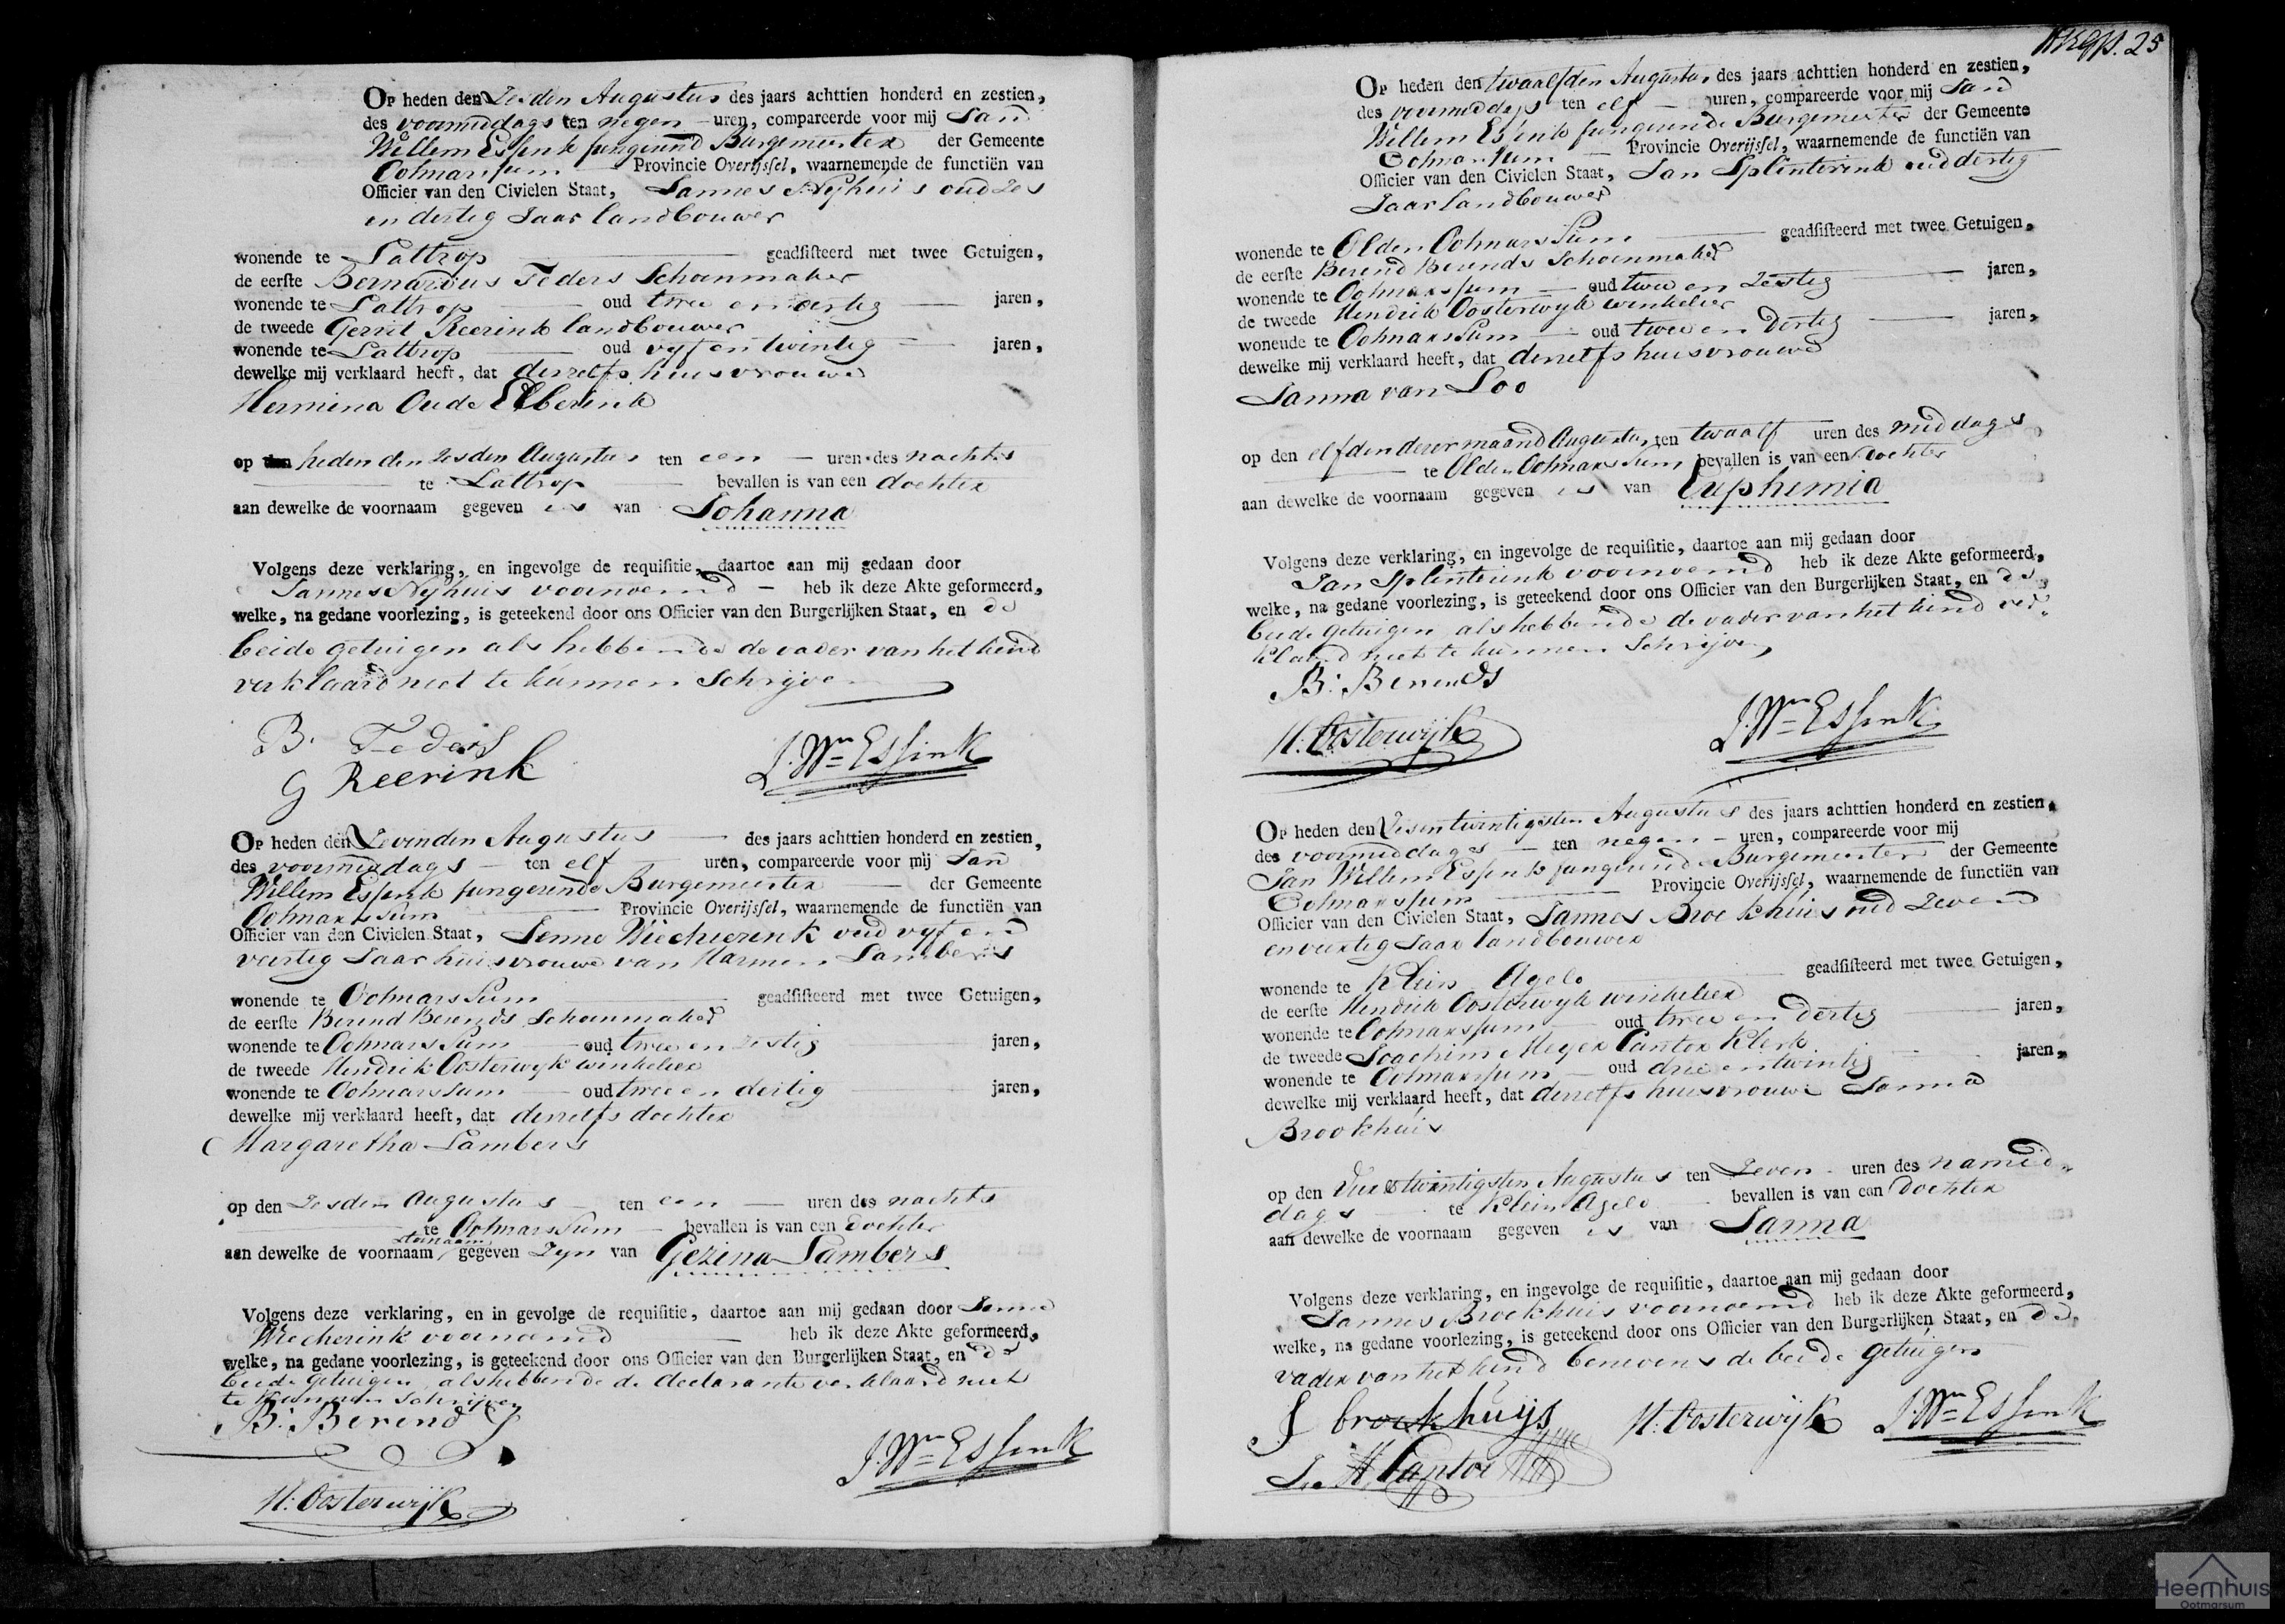 Op heden den Zesden Augustus des jaars achttien honderd en zestien,
des voormiddags ten negen uren, compareerde voor mij Jan
Willem Essink fungerend Burgemeester der Gemeente
Ootmarssum Provincie Overijssel, waarnemende de functiën van
Officier van den Civielen Staat, Jannes Nijhuis oud zes
en dertig Jaar landbouwer
wonende te Lattrop geadsisteerd met twee Getuigen,
de eerste Bernardus Feders Schoenmaker
wonende te Lattrop oud twee en dertig jaren,
de tweede Gerrit Reerink landbouwer
wonende te Lattrop oud vyf en twintig jaren,
dewelke mij verklaard heeft, dat deszelfs huisvrouwe
Hermina Oude Elberink
op heden den zesden Augustus ten een uren des nachts
te Lattrop bevallen is van een dochter
aan dewelke de voornaam gegeven is van Johanna
Volgens deze verklaring, en ingevolge de requisitie, daartoe aan mij gedaan door
Jannes Nijhuis voornoemd heb ik deze Akte geformeerd,
welke, na gedane voorlezing, is geteekend door ons Officier van den Burgerlijken Staat, en de
beide getuigen als hebbende de vader van het kind
verklaard niet te kunnen Schrijven
B. Feders
G Reerink
J. Wm Essink
Op heden den Zevenden Augustus des jaars achttien honderd en zestien,
des voormiddags ten elf uren, compareerde voor mij Jan
Willem Essink fungerende Burgemeester der Gemeente
Ootmarssum Provincie Overijssel, waarnemende de functiën van
Officier van den Civielen Staat, Jenne Wiecherink oud vyf en
veertig Jaar huisvrouwe van Harmen Lambers
wonende te Ootmarssum geadsisteerd met twee Getuigen,
de eerste Berend Berends Schoenmaker
wonende te Ootmarssum oud twee en zestig jaren,
de tweede Hendrik Oosterwyk winkelier
wonende te Ootmarssum oud twee en dertig jaren,
dewelke mij verklaard heeft, dat derzelfs dochter
Margaretha Lambers
op den zesden Augustus ten een uren des nachts
te Ootmarssum bevallen is van een dochter
aan dewelke de voornaam gegeven zyn van Gezina Lambers
Volgens deze verklaring, en in gevolge de requisitie, daartoe aan mij gedaan door Jenne
Wiecherink voornoemd heb ik deze Akte geformeerd,
welke, na gedane voorlezing, is geteekend door ons Officier van den Burgerlijken Staat, en de
beide getuigen als hebbende de declarante verklaard niet
te kunnen schrijven
B: Berends
J. Wm Essink
H: Oosterwijk
25
Op heden den twaalfden Augustus des jaars achttien honderd en zestien,
des voormiddags ten elf uren, compareerde voor mij Jan
Willem Essink fungerende Burgemeester der Gemeente
Ootmarssum Provincie Overijssel, waarnemende de functiën van
Officier van den Civielen Staat, Jan Splinterink oud dertig
Jaar landbouwer
wonende te Olden Ootmarssum geadsisteerd met twee Getuigen,
de eerste Berend Berends Schoenmaker
wonende te Ootmarssum oud twee en zestig jaren,
de tweede Hendrik Oosterwyk winkelier
wonende te Ootmarssum oud twee en dertig jaren,
dewelke mij verklaard heeft, dat deszelfs huisvrouwe
Janna van Loo
op den elfden dezer maand Augustus ten twaalf uren des middags
te Olden Ootmarssum bevallen is van een dochter
aan dewelke de voornaam gegeven is van Euphemia
Volgens deze verklaring, en ingevolge de requisitie, daartoe aan mij gedaan door
Jan Splinterink voornoemd heb ik deze Akte geformeerd,
welke, na gedane voorlezing, is geteekend door ons Officier van den Burgerlijken Staat, en de
beide getuigen als hebbende de vader van het kind ver-
klaard niet te kunnen Schrijven
B: Berends
H: Oosterwijk
J. Wm Essink
Op heden den Zesentwintigsten Augustus des jaars achttien honderd en zestien,
des voormiddags ten negen uren, compareerde voor mij
Jan Willem Essink fungerende Burgemeester der Gemeente
Ootmarssum Provincie Overijssel, waarnemende de functiën van
Officier van den Civielen Staat, Jannes Broekhuis oud zeven
en veertig Jaar landbouwer
wonende te Klein Agelo geadsisteerd met twee Getuigen,
de eerste Hendrik Oosterwyk winkelier
wonende te Ootmarssum oud twee en dertig jaren,
de tweede Joachim Meyer Cantor Klerk
wonende te Ootmarssum oud drie en twintig jaren,
dewelke mij verklaard heeft, dat deszelfs huisvrouwe Janna
Brookhuis
op den Vier en twintigsten Augustus ten Zeven uren des namid-
dags te Klein Agelo bevallen is van een dochter
aan dewelke de voornaam gegeven is van Janna
Volgens deze verklaring, en ingevolge de requisitie, daartoe aan mij gedaan door
Jannes Broekhuis voornoemd heb ik deze Akte geformeerd,
welke, na gedane voorlezing, is geteekend door ons Officier van den Burgerlijken Staat, en de
vader van het kind benevens de beide getuigen
J broekhuijs
H: Oosterwijk
J. Wm Essink
Cantor
Heemhuis
Ootmarsum